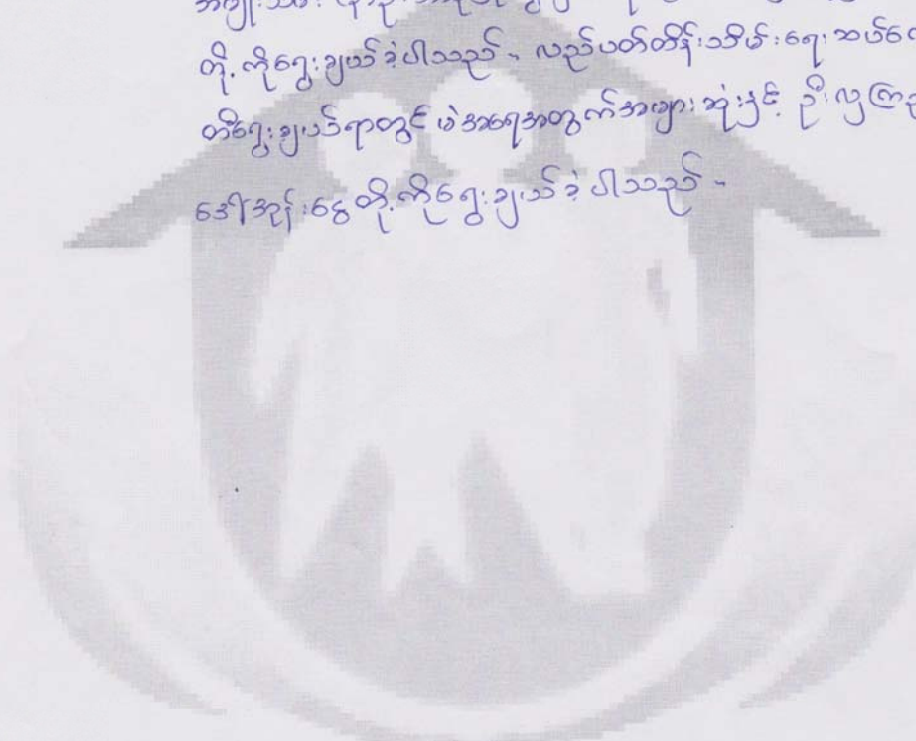 တို့ကိုရွေးချယ်ခဲ့ပါသည် - လည်ပတ်ထိန်းသိမ်းရေးဆပ်ကော်
တီရွေးချယ်ရာတွင် မဲအရေအတွက်အများဆုံးနှင့် ဦးလှကြည်
ဒေါ်အုန်းငွေတို့ကိုရွေးချယ်ခဲ့ပါသည် -